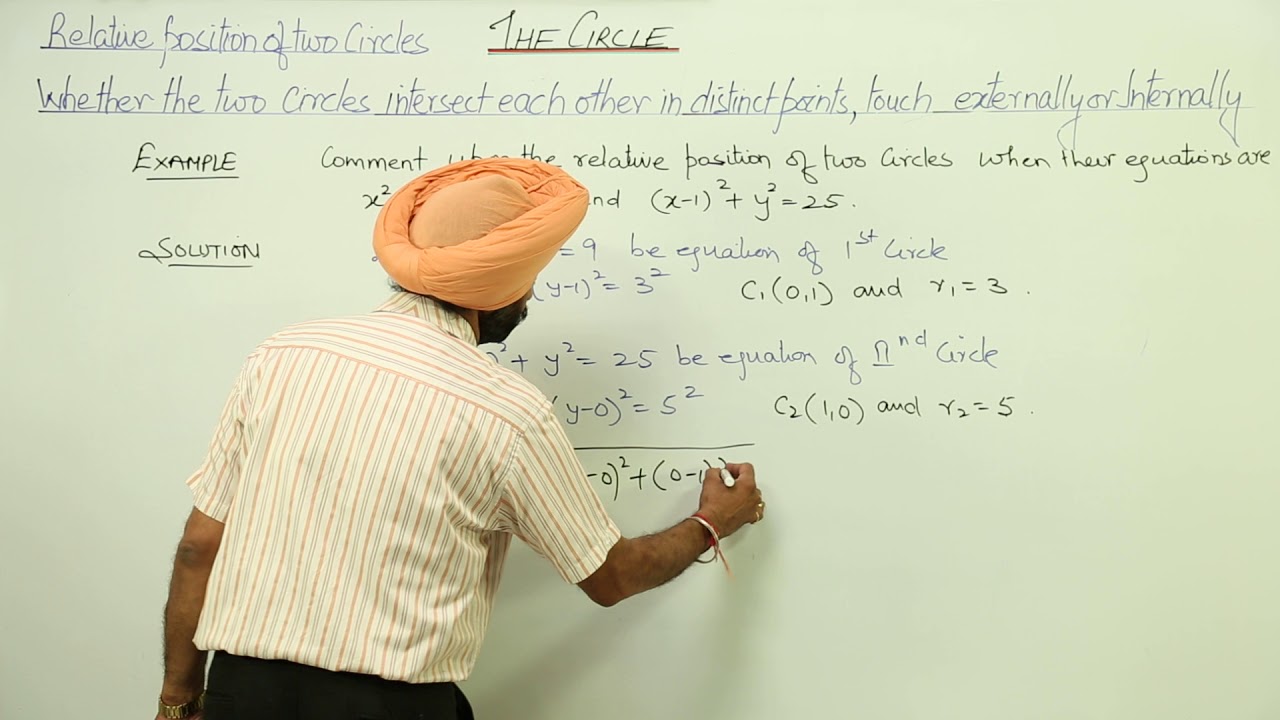 Relative position of two Circles THE CIRCLE
Whether the two Circles intersect each other in distinct points, touch externally or Internally
EXAMPLE Comment the relative position of two Circles when their equations are
x² nd (x-1)² + y² = 25.
SOLUTION = 9 be equation of 1st Circle
(y-1)² = 3² C₁(0,1) and r₁ = 3.
² + y² = 25 be equation of IInd Circle
(y-0)² = 5² C₂(1,0) and r₂ = 5.
-0)² + (0-1)²